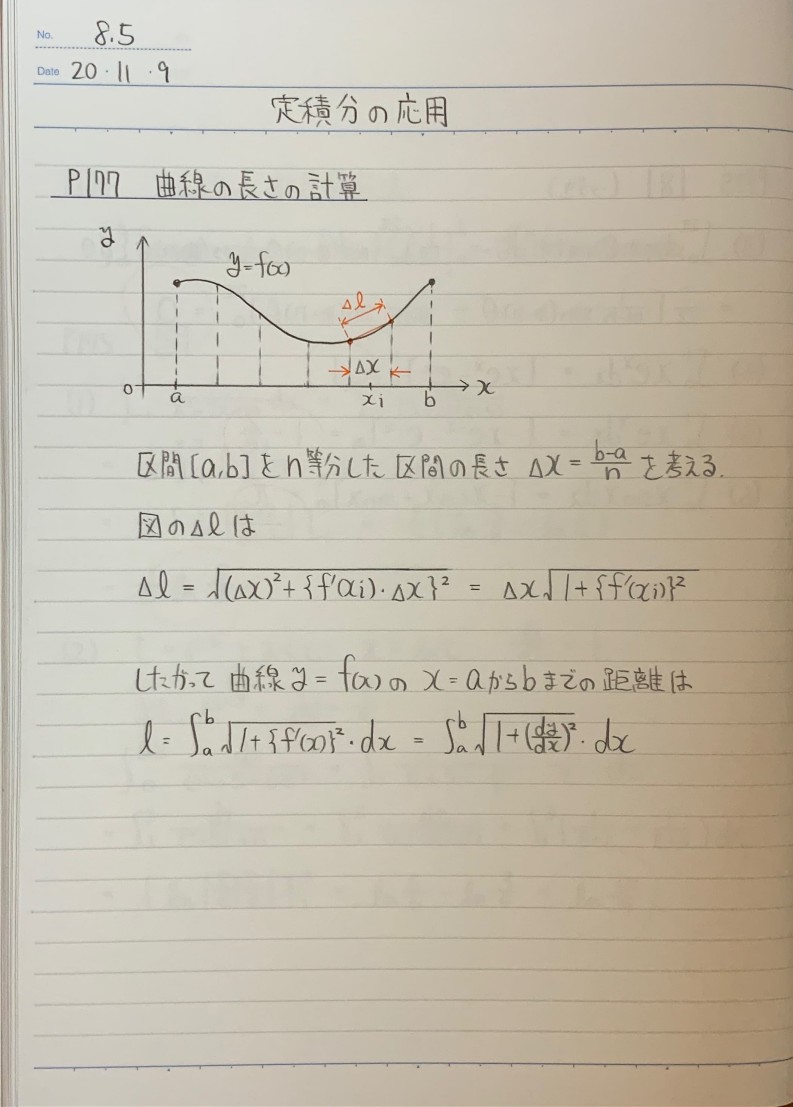 No. 8.5
Date 20・11・9
定積分の応用
P177 曲線の長さの計算
y
y=f(x)
Δl
Δx
o a xi b x
区間[a,b]をn等分した区間の長さ Δx = \frac{b-a}{n} を考える.
図のΔlは
Δl = √((Δx)²+{f'(xi)・Δx}²) = Δx√(1+{f'(xi)}²)
したがって 曲線 y=f(x)の x=aからbまでの距離は
l = ∫_a^b √(1+{f'(x)}²)・dx = ∫_a^b √(1+(\frac{dy}{dx})²)・dx